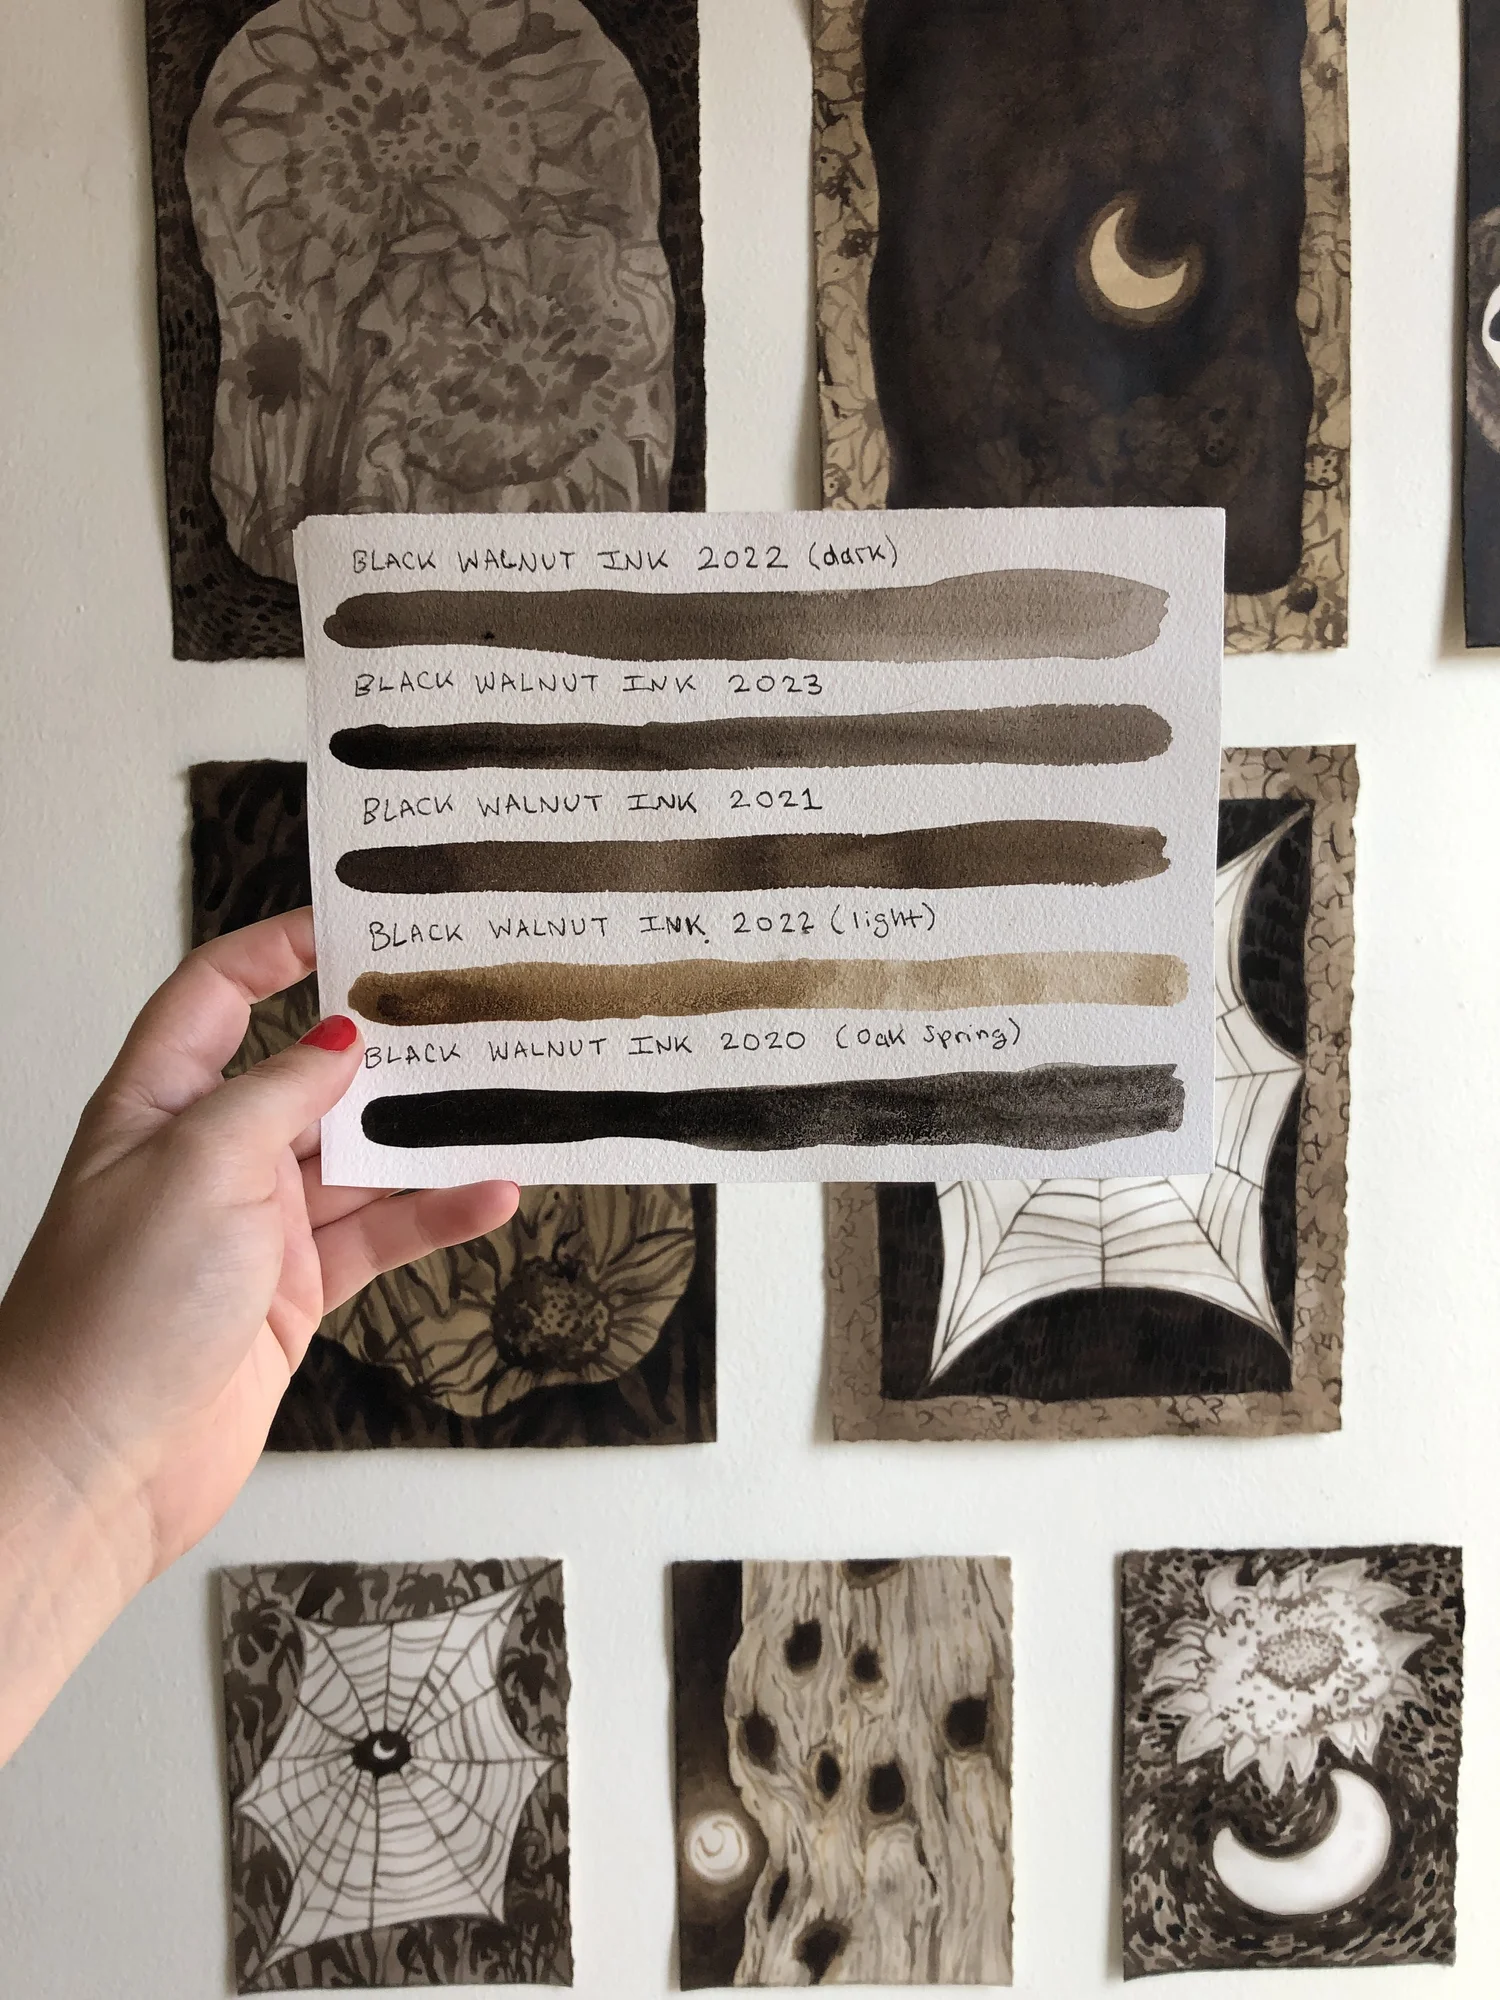 BLACK WALNUT INK 2022 (dark)
BLACK WALNUT INK 2023
BLACK WALNUT INK 2021
BLACK WALNUT INK. 2022 (light)
BLACK WALNUT INK 2020 (Oak Spring)